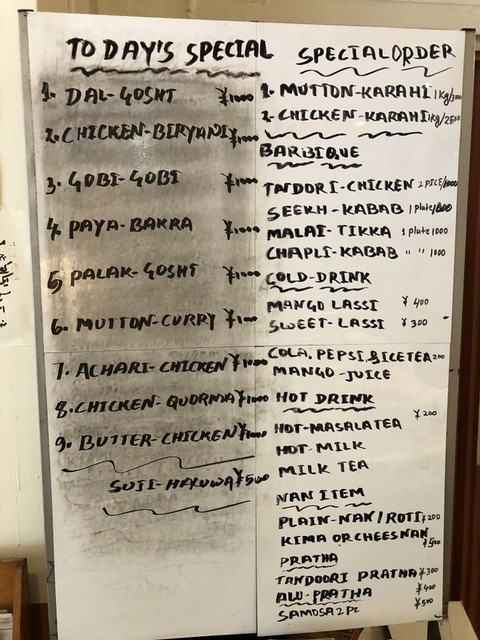 TO DAY'S SPECIAL
1. DAL-GOSHT ¥1000
2. CHICKEN-BIRYANI ¥1000
3. GOBI-GOBI ¥1000
4. PAYA-BAKRA ¥1000
5. PALAK-GOSHT ¥1000
6. MUTTON-CURRY ¥1000
7. ACHARI-CHICKEN ¥1000
8. CHICKEN-QUORMA ¥1000
9. BUTTER-CHICKEN ¥1000
SUJI-HALUWA ¥500
SPECIAL ORDER
1. MUTTON-KARAHI 1kg/
2. CHICKEN-KARAHI 1kg/2500
BARBIQUE
TANDORI-CHICKEN 2 PICE/1000
SEEKH-KABAB 1 Plate/800
MALAI-TIKKA 1 plate 1000
CHAPLI-KABAB " " 1000
COLD-DRINK
MANGO LASSI ¥ 400
SWEET-LASSI ¥ 300
COLA, PEPSI, 200
MANGO-JUICE
HOT DRINK
¥200
HOT-MASALA TEA
HOT-MILK
MILK TEA
NAN ITEM
PLAIN-NAN/ROTI ¥200
KIMA OR CHEES NAN ¥500
PRATHA
TANDOORI PRATHA ¥300
ALU-PRATHA ¥400
SAMOSA 2PC ¥500